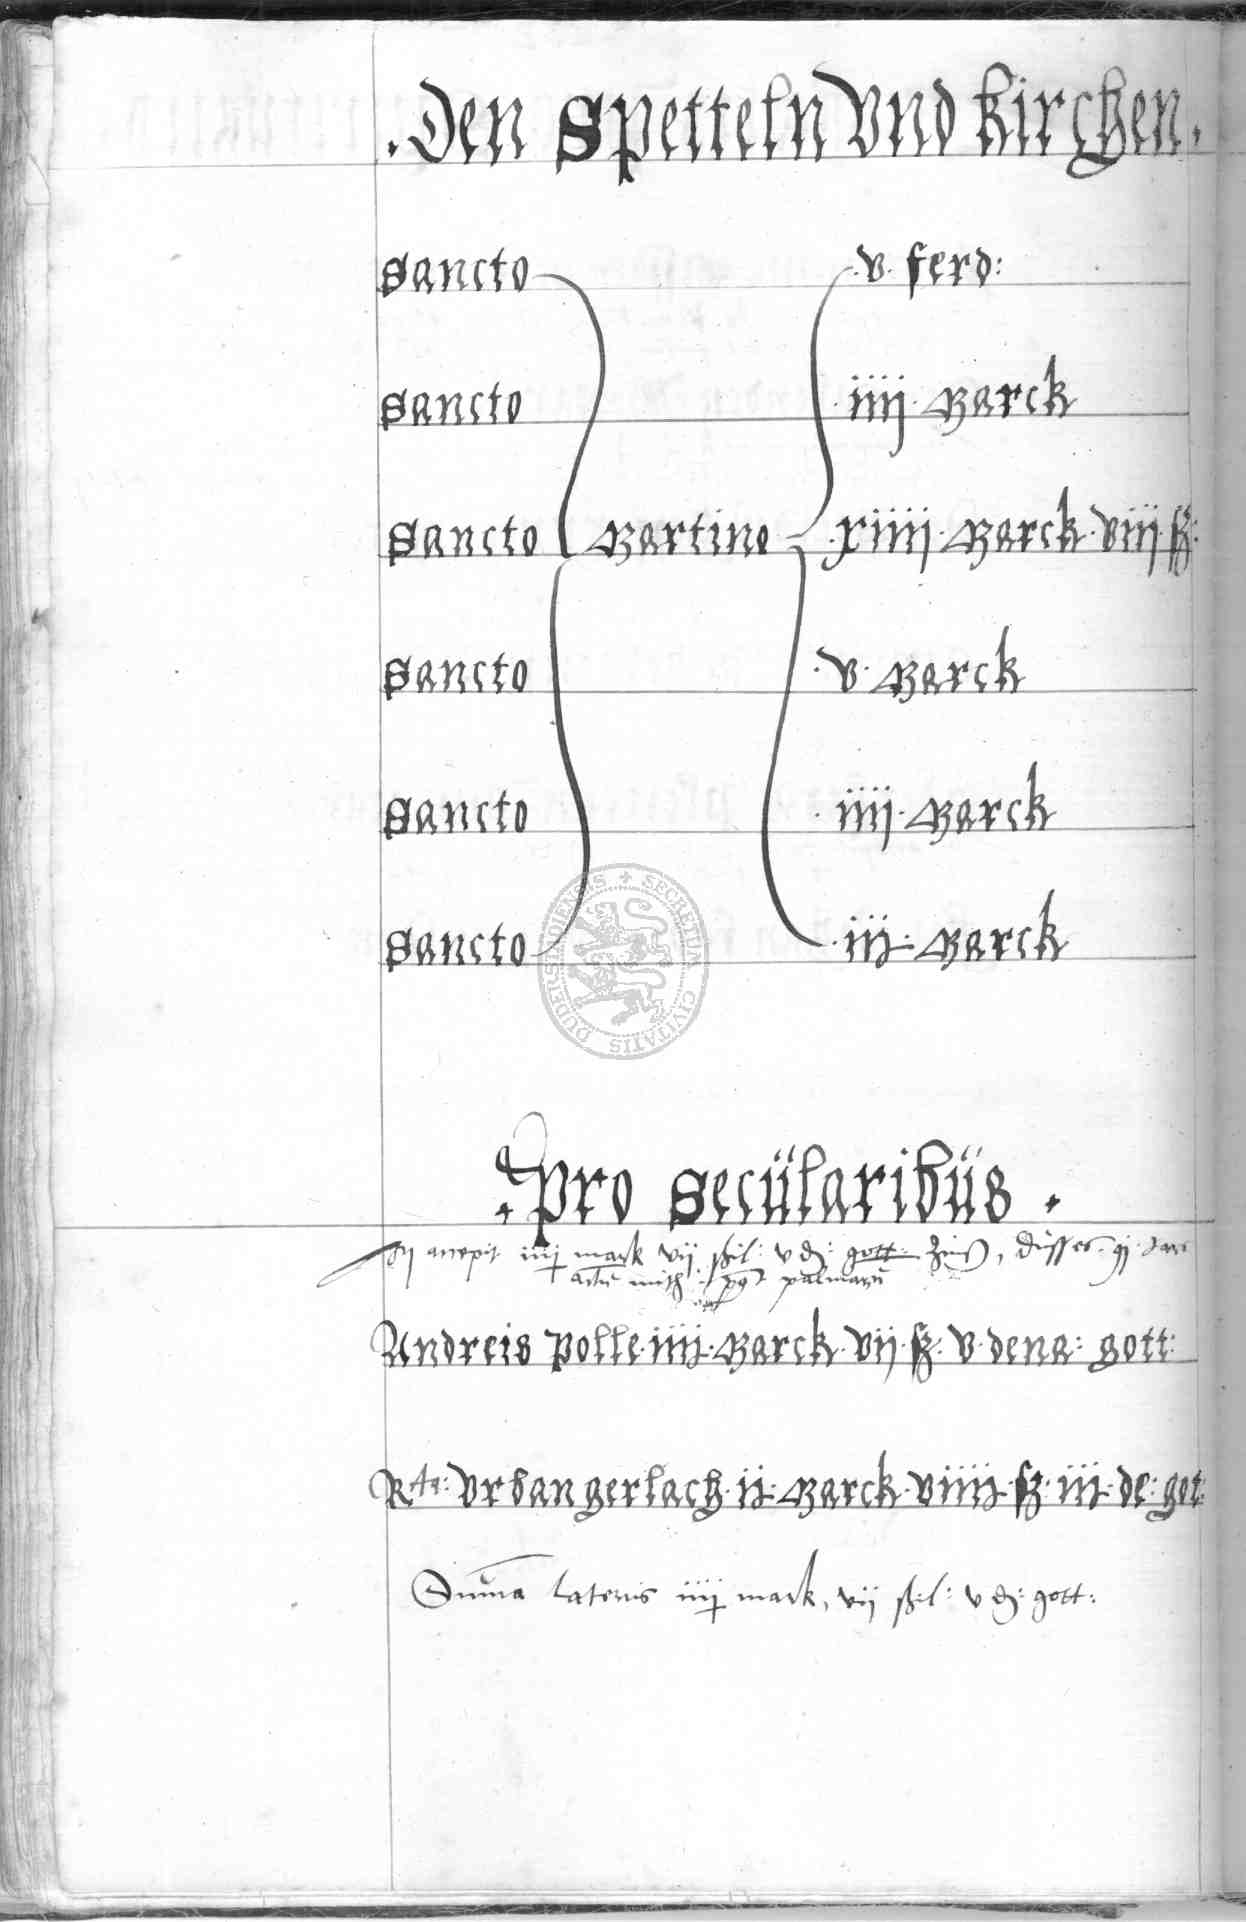 . Den Spetteln Vnd kirchen .
Sancto .v. ferd:
Sancto .iiij. Marck
Sancto Martino .xiiij. Marck. viij. ß:
Sancto .v. Marck
Sancto .iiij. Marck
Sancto .iij. Marck
SECRETUM CIVITATIS DUDERSTADIENSIS
. Pro Secülaribüs .
accepit iiij mark vij ßil: v d: gott: zinß, düsses
palmarum
Andreis Polle. iiij. Marck. vij. ß. v. dena: gott:
Vrban gerlach. ij. Marck. viiij. ß. iij. de: got:
Summa lateris iiij mark, vij ßil: v d: gott: